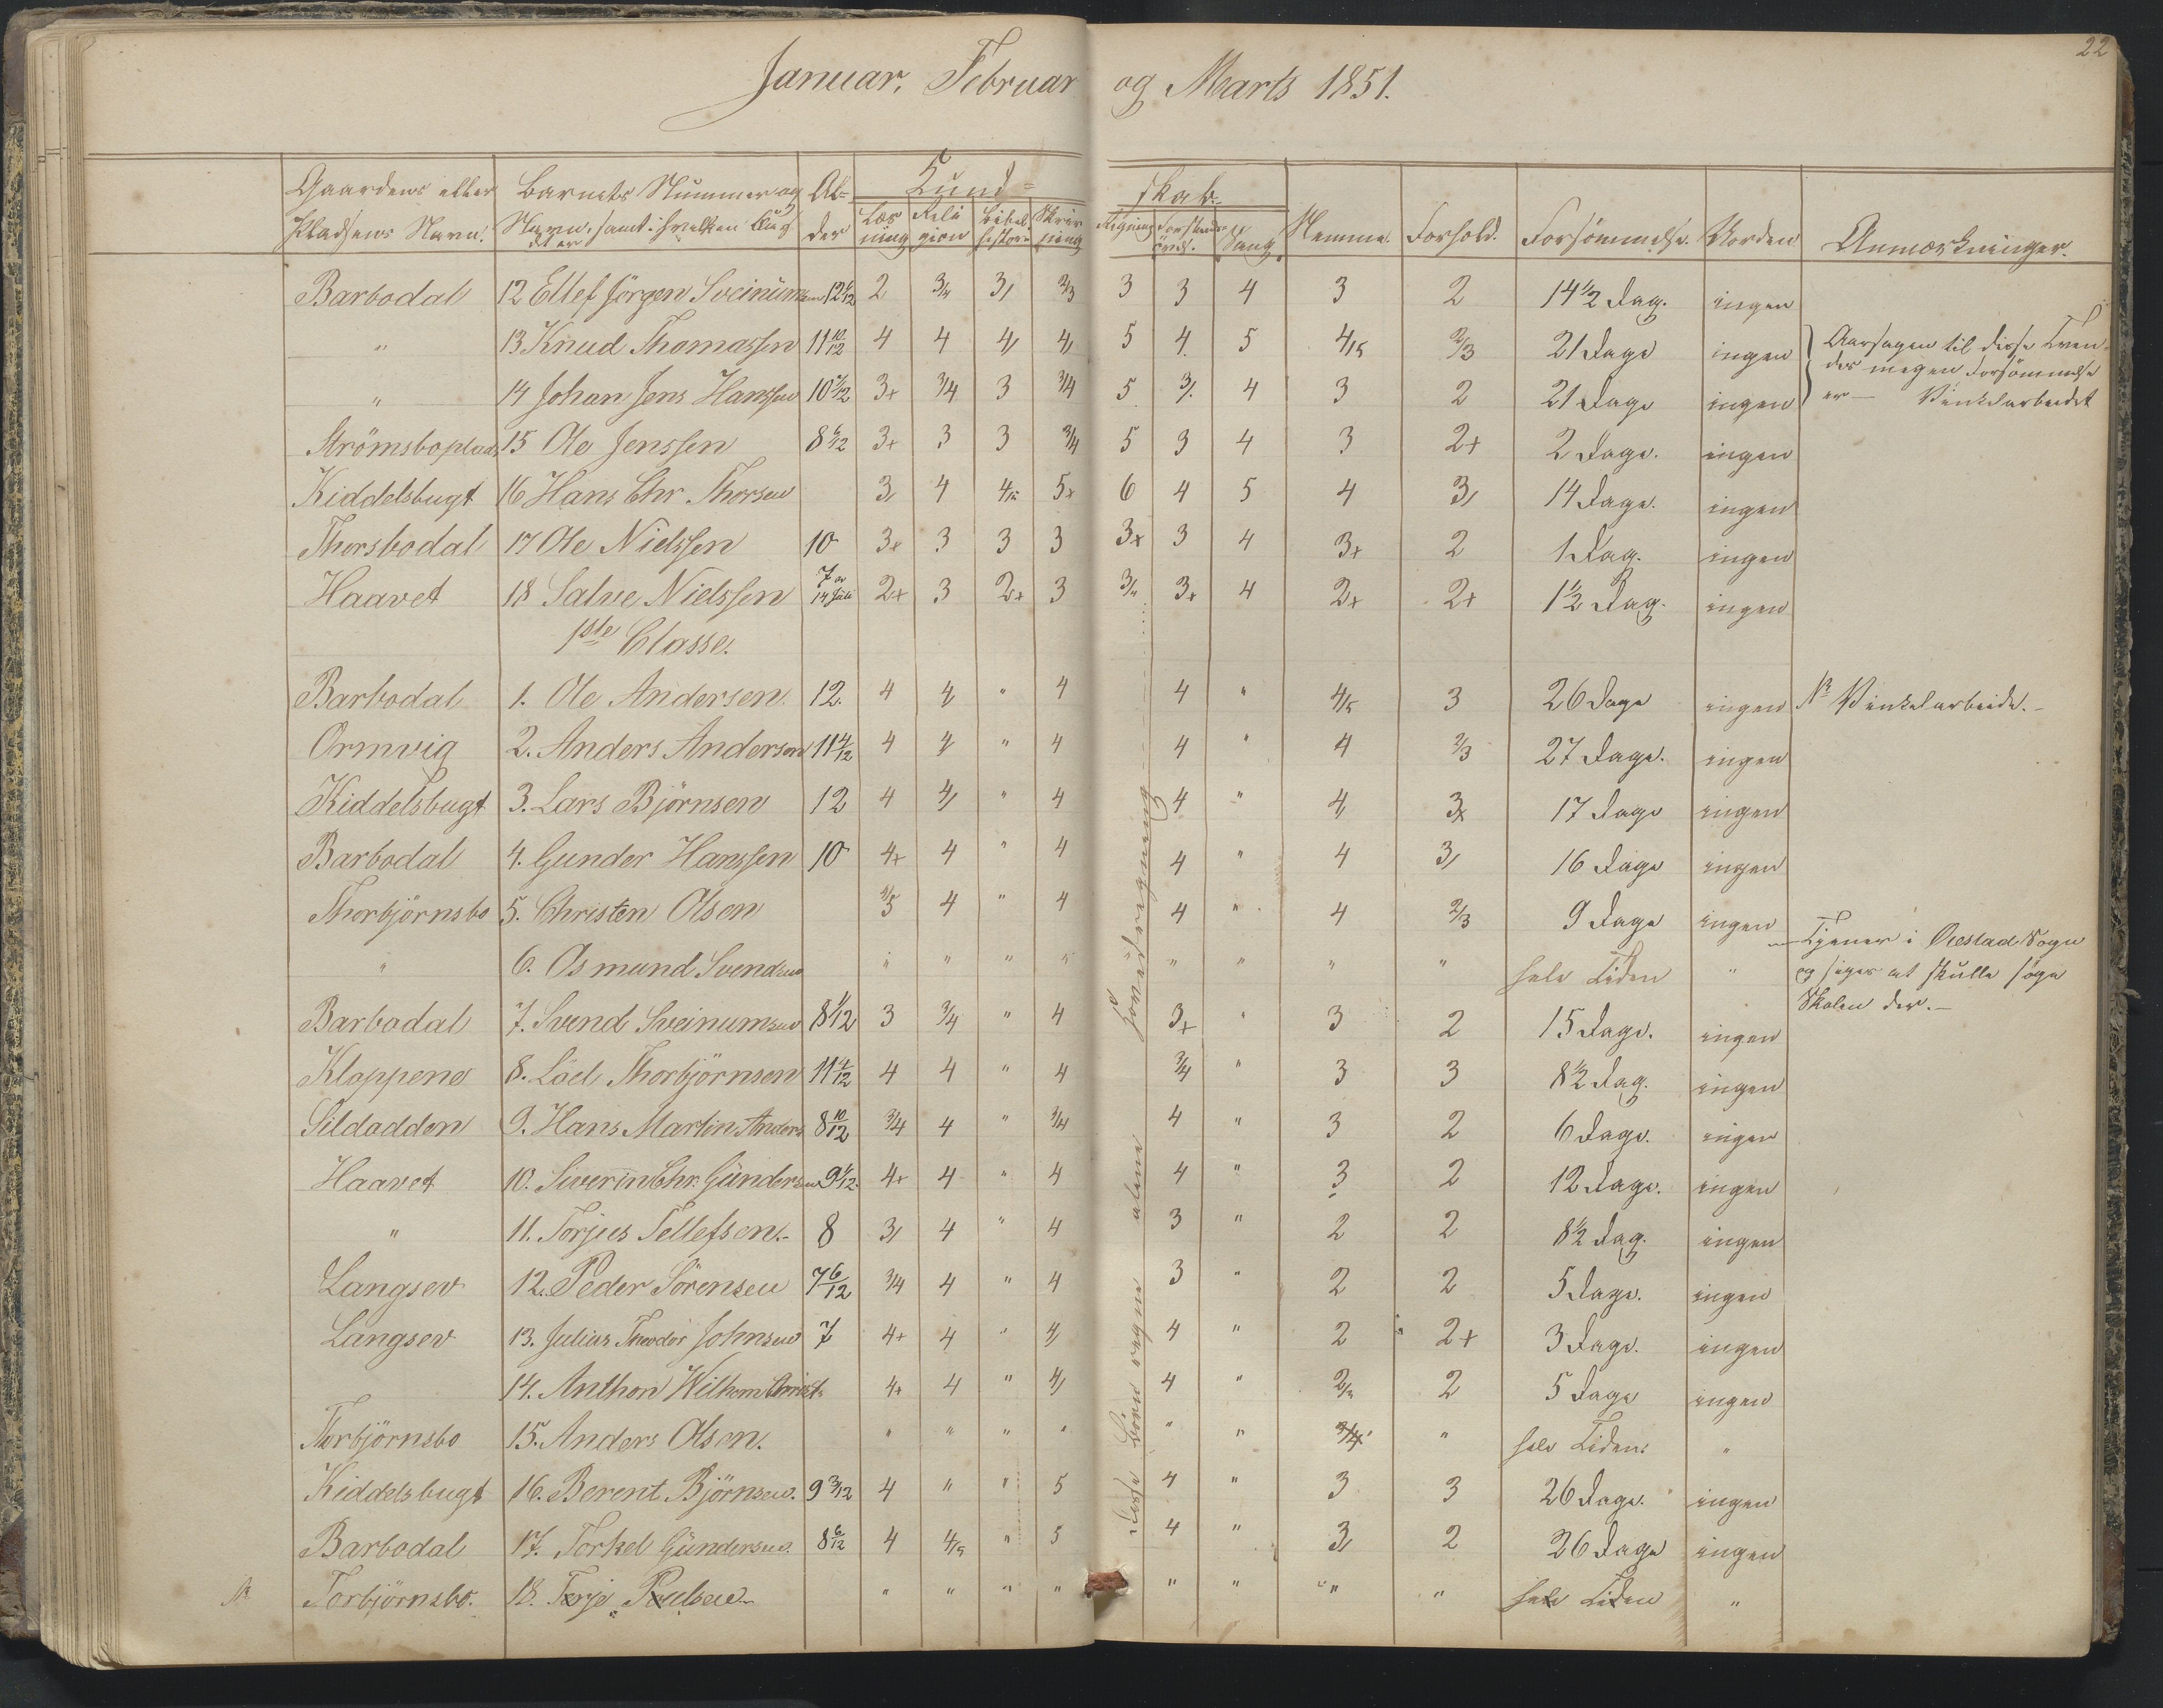 22
Januar, Februar og Marts 1851.
Gaardens eller Pladsens Navn. Barnets Nummer og Navn, samt i hvilken Klasse det er Alder Kundskab. Nemme. Forhold. Forsömmelse. Vorden Anmærkninger.
Læsning Religion Bibelhistorie Skrivning Regning Forstandsøvels. Sang
Barbodal 12 Ellef Jörgen Sveinumsen 12 6/12 2 3/4 3/ 2/3 3 3 4 3 2 14 1/2 Dag. ingen
" 13 Knud Thomassen 11 10/12 4 4 4/ 4/ 5 4. 5 4/5 2/3 21 Dage ingen Aarsagen til disse Tven-
" 14 Johan Jens Hanssen 10 7/12 3+ 3/4 3 3/4 5 3/. 4 3 2 21 Dage ingen des megen Forsömmelse
er — Vinkelarbeidet
Strömsboplads 15 Ole Jenssen 8 6/12 3+ 3 3 3/4 5 3 4 3 2+ 2 Dage. ingen
Kiddelsbugt 16 Hans Chr. Thorsen 3/ 4 4/5 5+ 6 4 5 4 3/ 14 Dage. ingen
Thorsbodal 17 Ole Nielssen 10 3+ 3 3 3 3+ 3 4 3+ 2 1 Dag. ingen
Haavet 18 Salve Nielssen 7 år 14 Juli 2+ 3 2+ 3 3/4 3+ 4 2+ 2+ 1 1/2 Dag. ingen
1ste Classe.
Barbodal 1. Ole Andersen. 12. 4 4/ " 4 4 " 4/5 3 26 Dage ingen Vinkelarbeide.-
Ormvig 2. Anders Andersen 11 4/12 4 4/ " 4 4 " 4 2/3 27 Dage. ingen
Kiddelsbugt 3. Lars Björnsen 12 4 4/ " 4 4 " 4/ 3+ 17 Dage ingen
Barbodal 4. Gunder Hanssen 10 4+ 4 " 4 4 " 4 3/ 16 Dage ingen
Thorbjörnsbo 5. Christen Olsen 4/5 4 " 4 4 " 4 2/3 9 Dage ingen
" 6. Osmund Svendsen " " " " " " " " hele Tiden " Tjener i Oiestad Sogn
og siges at skulle söge
Skolen der.-
Barbodal 7. Svend Sveinumsen 8 1/12 3 3/4 " 4 3+ " 3 2 15 Dage. ingen
Kloppene 8. Löel Thorbjörnsen 11 4/12 4 4 " 4 3/4 " 3 3 8 1/2 Dag. ingen
Sildodden 9. Hans Martin Anders 8 10/12 3/4 4 " 3/4 4 " 3 2 6 Dage. ingen
Haavet 10. Siverin Chr. Gundersen 9 1/12 4+ 4 " 4 4 " 3 2 12 Dage. ingen
" 11. Torjus Tellefsen.- 8 3/ 4 " 4 3 " 2 2 8 1/2 Dag. ingen
Langsev 12. Peder Sörensen 7 6/12 3/4 4 " 4 3 " 2 2 5 Dage. ingen
Langsev 13. Julius Theodor Johnsen 7 4+ 4 " 4/ 4 " 2 2+ 3 Dage. ingen
14. Anthon Wilhem Christ. 4+ 4 " 4/ 4 " 2/3 2 5 Dage ingen
Torbjörnsbo 15. Anders Olsen. " " " " " " 3/4 " hele Tiden. "
Kiddelsbugt 16. Berent Björnsen. 9 3/12 4 " " 5 4 " 3 3 26 Dage. ingen
Barbodal 17. Torkel Gundersen. 8 6/12 4 4/5 " 5 4 " 3/ 2 26 Dage ingen
Torbjörnsbo. 18. Terje Poulsen " " " " " " " " hele Tiden "
disse Börn regne alene Hovedregning